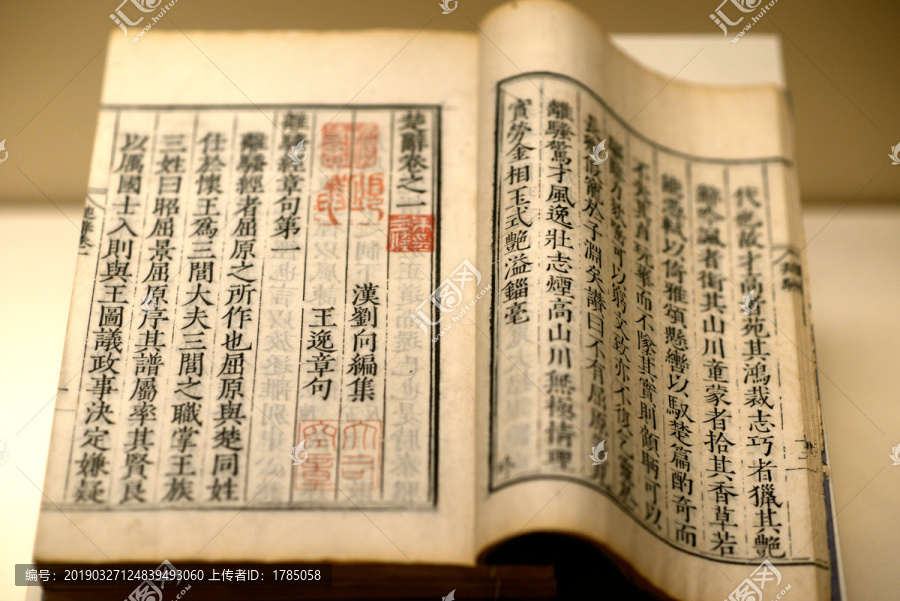 代也故才高者菀其鴻裁志巧者獵其艷
辭吟諷者銜其山川童蒙者拾其香草若
能憑軾以倚雅頌懸轡以馭楚篇酌奇而
不失其真玩華而不墜其實則顧盼可以
力欬唾可以窮文致亦不復乞靈於
長卿假寵於子淵矣讚曰不有屈原
離騷驚才風逸壯志煙高山川無極情理
實勞金相玉式艷溢錙毫
楚辭卷之一
漢劉向編集
王逸章句
離騷經章句第一
離騷經者屈原之所作也屈原與楚同姓
仕於懷王爲三閭大夫三閭之職掌王族
三姓曰昭屈景屈原序其譜屬率其賢良
以厲國士入則與王圖議政事決定嫌疑
汇图网 www.huitu.com
编号：20190327124839493060 上传者ID：1785058